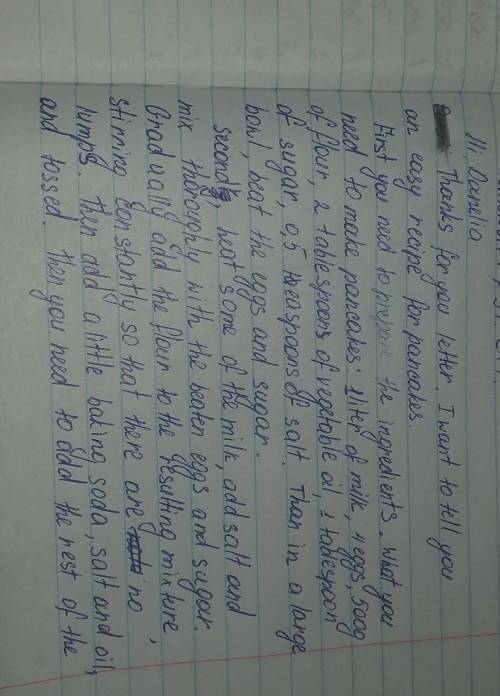 Hi Damelia
Thanks for you letter. I want to tell you
an easy recipe for pancakes.
First you need to prepare the ingredients. What you
need to make pancakes: 1 liter of milk, 4 eggs, 500g
of flour, 2 tablespoons of vegetable oil, 1 tablespoon
of sugar, 0,5 teaspoons of salt. Than in a large
bowl, beat the eggs and sugar.
secondly heat some of the milk, add salt and
mix thoroughly with the beaten eggs and sugar.
Gradually add the flour to the resulting mixture,
stirring constantly so that there are no
lumps. Then add a little baking soda, salt and oil,
and tossed. then you need to add the rest of the